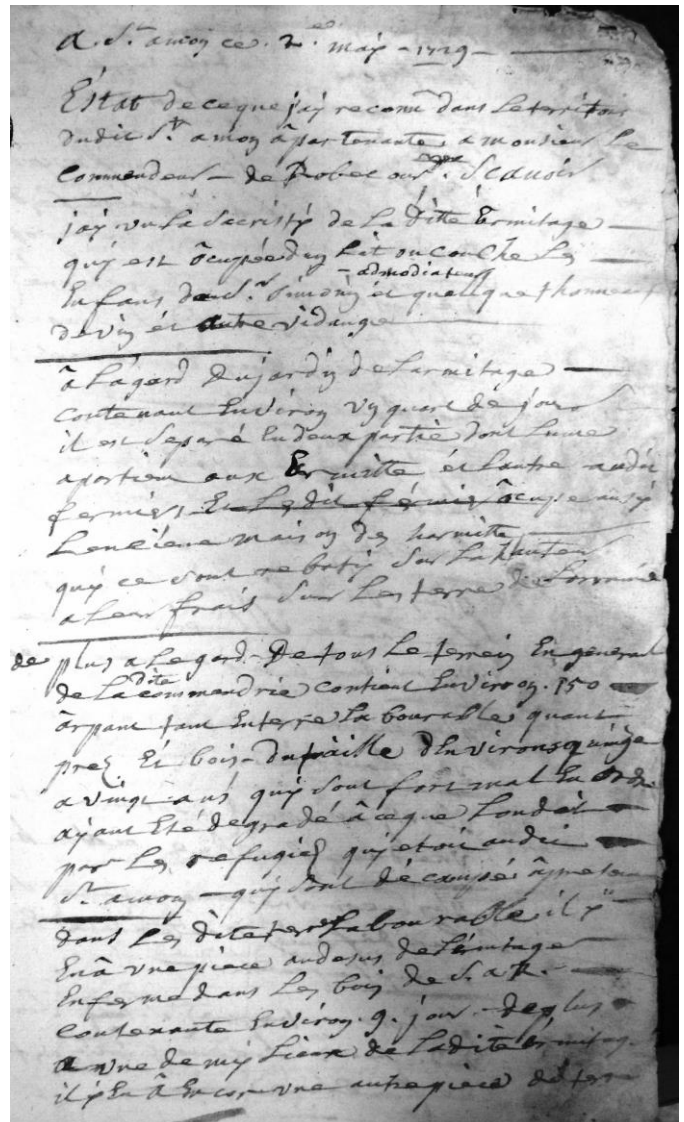 A. St. amon ce. 2.e may - 1729 -
Estat de ce que j'ay reconu dans le territoir
dudit St. amon apartenante, a monsieur le
Commendeur - de Robecour. Scavoir
j'ay vu la Secristy de La ditte Ermitage
quy est ocupée dun Lit ou couche Les
- admodiateur
Enfans de Sr. Simony et quelque thonneaux
de vin et autre vidange
à L'agard du jardin de Larmitage
contenant Environ un quart de jour
il est separé En deux partie dont Lune
apartien aux Ermitte et Lautre audit
fermier, Et Ledit fermier ocupe aussy
Lencienne maison des harmitte
quy ce sont rebaty sur La hauteur
a Leur frais sur Les terre de Lorraine
de plus a Legard - De tous Le terrein En general
de La dite commendrie contient Environ. 150
arpant tant En terre La bourable quant
prez Et bois - du taille d'Environs quinze
a vingt ans quy sont fort mal En ordre
ayant Eté degradé à ce que Londit
par Les refugiez quy etoi audit
St. amon - quy sont décampé
dans Les dite terre Labourable il y
En a vne piece audesus de Lermitage
Enfermé dans Les bois de S. A. R. -
contenante Environ. 9. jour - de plus
a vne demy Lieux de Ladite Ermitage
il y En a Encore vne autre piece de terre